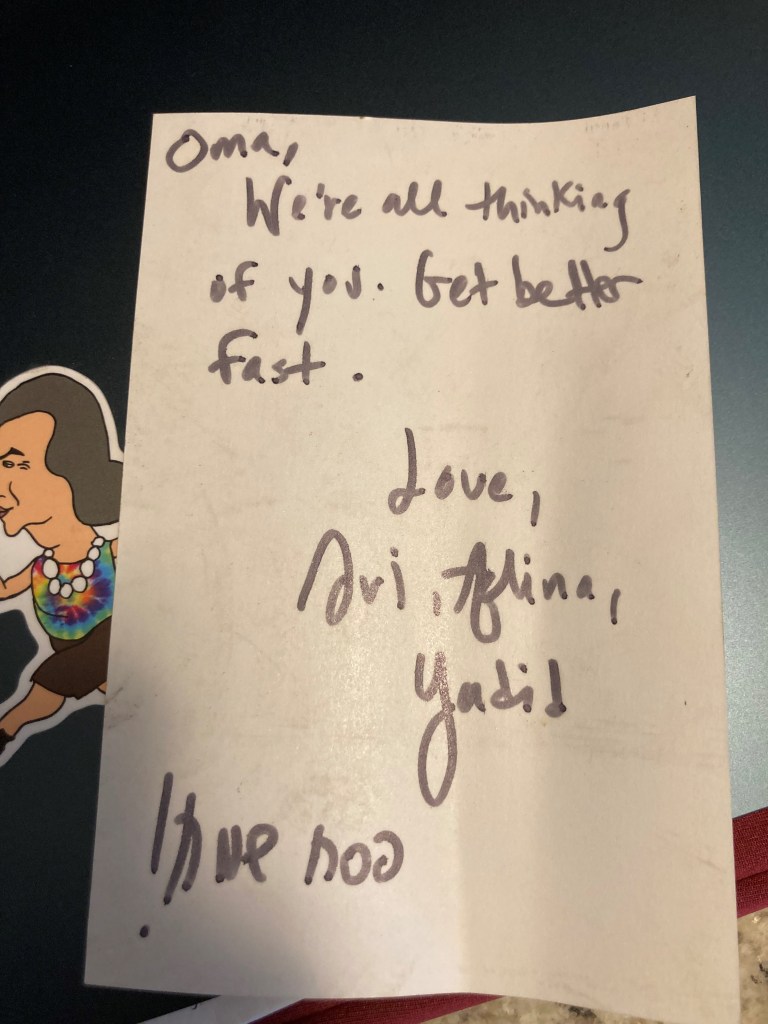 Oma,
We're all thinking
of you. Get better
fast.
Love,
Avi, Alina,
Yadid
פסח שמח!